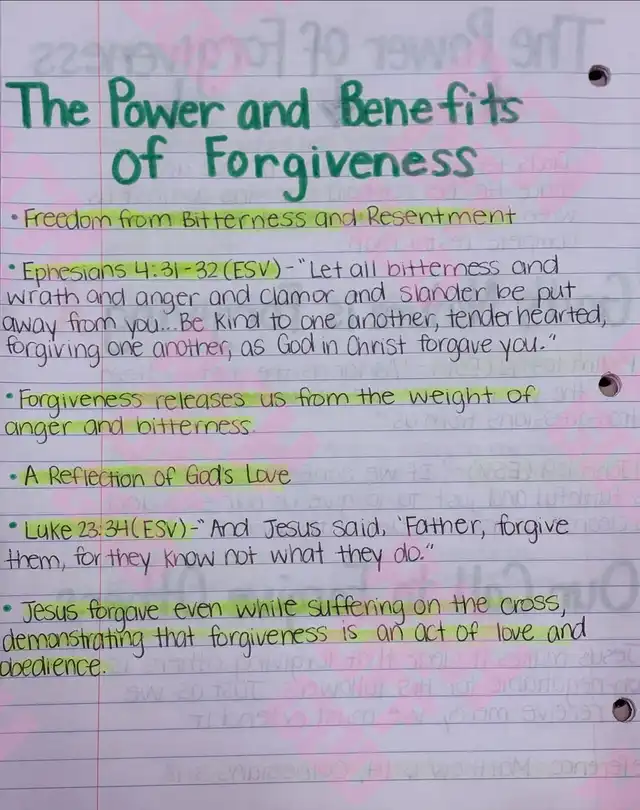 The Power and Benefits
of Forgiveness
• Freedom from Bitterness and Resentment
• Ephesians 4:31-32 (ESV) - "Let all bitterness and
wrath and anger and clamor and slander be put
away from you...Be kind to one another, tenderhearted,
forgiving one another, as God in Christ forgave you."
• Forgiveness releases us from the weight of
anger and bitterness.
• A Reflection of God's Love
• Luke 23:34 (ESV) - "And Jesus said, 'Father, forgive
them, for they know not what they do."
• Jesus forgave even while suffering on the cross,
demonstrating that forgiveness is an act of love and
obedience.